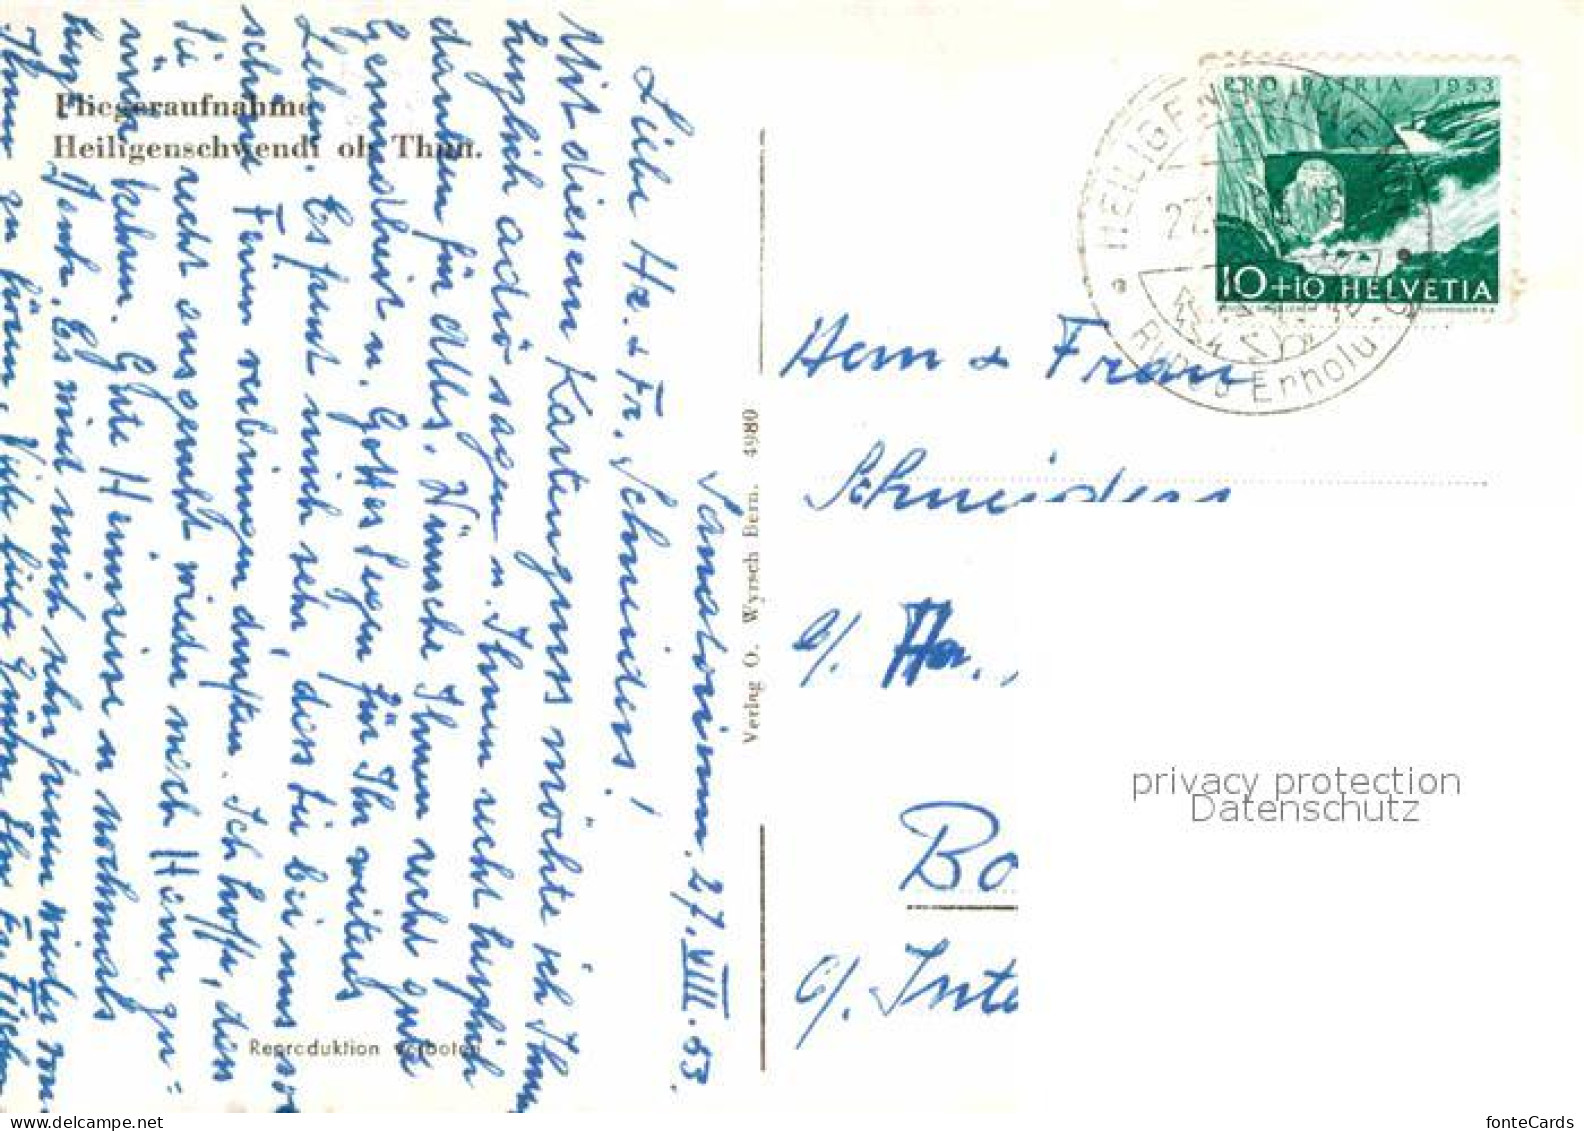 Fliegeraufnahme
Heiligenschwendi ob Thun.
Sanatorium. 27. VIII. 53.
Liebe Hr. & Fr. Schneiders!
Mit diesem Kartengruss möchte ich Ihnen
herzlich adiö sagen u. Ihnen recht herzlich
danken für Alles. Wünsche Ihnen recht gute
Gesundheit u. Gottes Segen für Ihr weiteres
Leben. Es freut mich sehr, dass Sie bei uns so
schöne Ferien verbringen durften. Ich hoffe, dass
Sie recht ausgeruht wieder nach Hause zu=
rück kehren. Gute Heimreise u nochmals
herzl. Dank. Es wird mich sehr freuen wieder von
Ihnen zu hören. Viele liebe Grüsse
Reproduktion verboten
Verlag O. Wyrsch Bern. 4980
PRO PATRIA 1953
10+10 HELVETIA
HEILIGENSCHWENDI
27
Erholu
Herrn & Frau
Schneiders
b/ Hr.
Bo
c/. Inte
privacy protection
Datenschutz
fonteCards